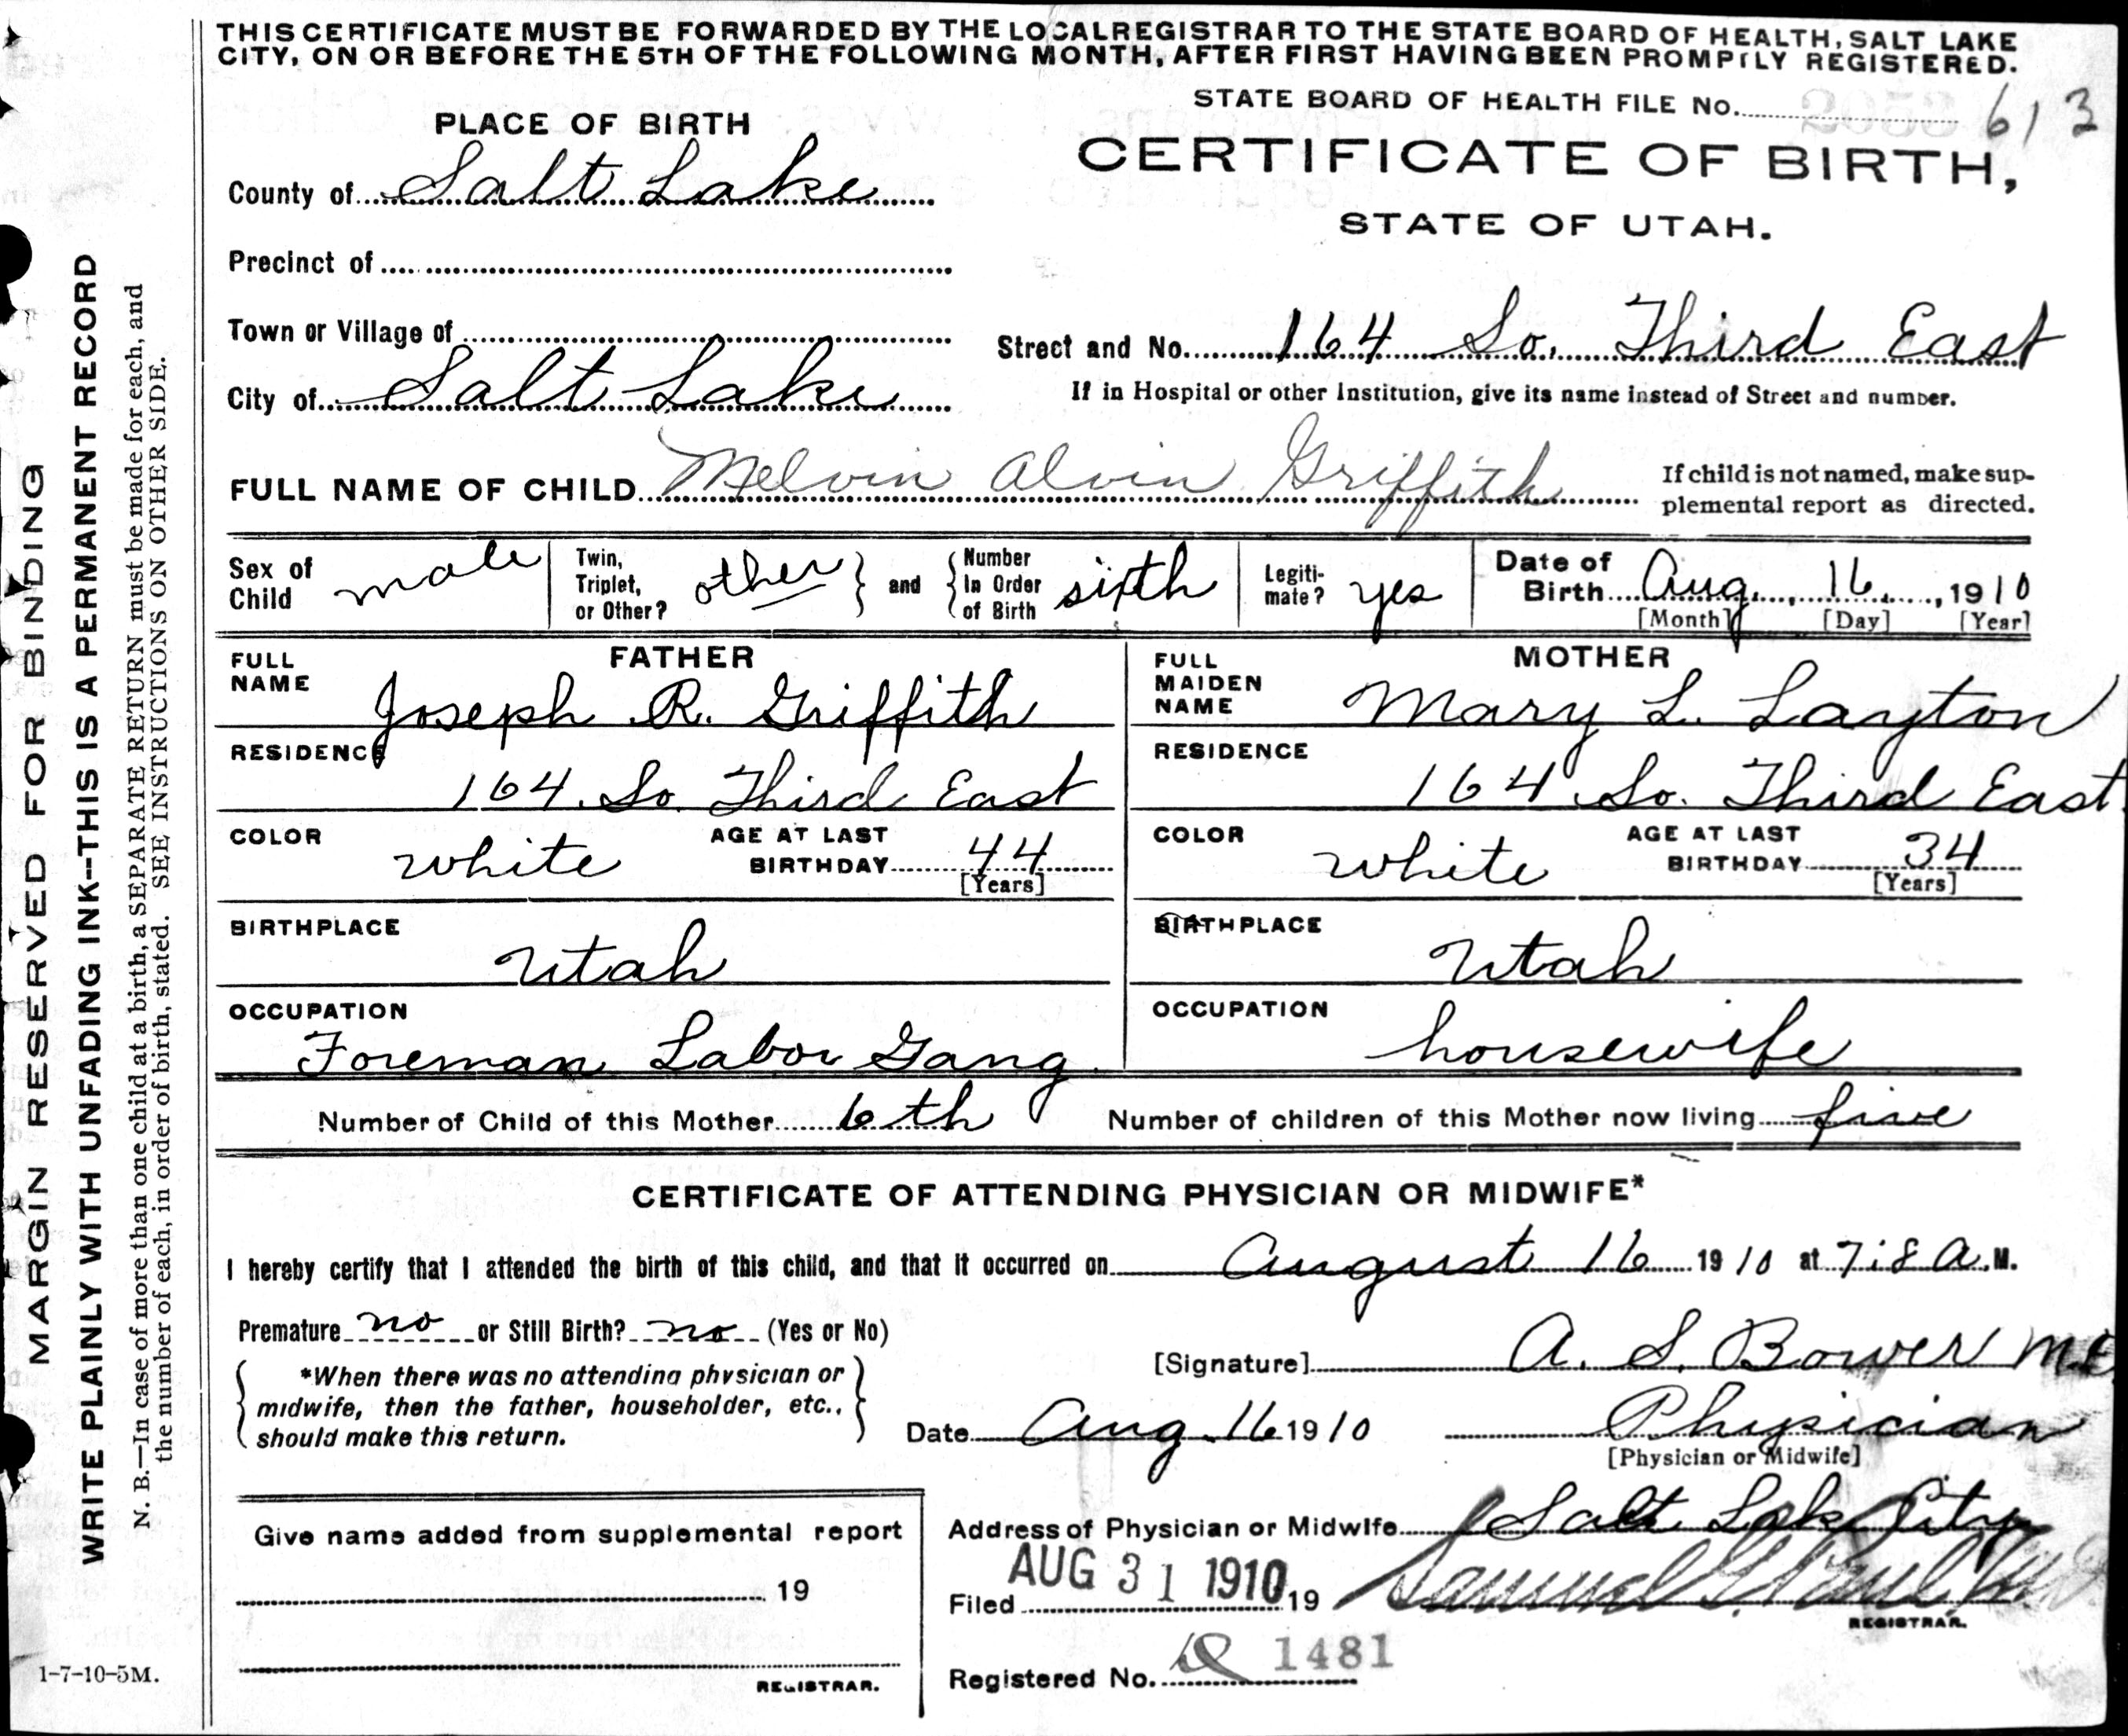 THIS CERTIFICATE MUST BE FORWARDED BY THE LOCAL REGISTRAR TO THE STATE BOARD OF HEALTH, SALT LAKE
CITY, ON OR BEFORE THE 5TH OF THE FOLLOWING MONTH, AFTER FIRST HAVING BEEN PROMPTLY REGISTERED.
STATE BOARD OF HEALTH FILE No. 613
PLACE OF BIRTH
CERTIFICATE OF BIRTH,
STATE OF UTAH.
County of Salt Lake
Precinct of
Town or Village of
Street and No. 164 So. Third East
City of Salt Lake
If in Hospital or other Institution, give its name instead of Street and number.
FULL NAME OF CHILD Melvin Alvin Griffith
If child is not named, make sup-
plemental report as directed.
Sex of Child male
Twin, Triplet, or Other? other and Number In Order of Birth sixth
Legiti-mate? yes
Date of Birth Aug. 16, 1910
[Month] [Day] [Year]
FATHER
FULL NAME Joseph R. Griffith
RESIDENCE 164 So. Third East
COLOR white AGE AT LAST BIRTHDAY 44 [Years]
BIRTHPLACE Utah
OCCUPATION Foreman Labor Gang
MOTHER
FULL MAIDEN NAME Mary L. Layton
RESIDENCE 164 So. Third East
COLOR white AGE AT LAST BIRTHDAY 34 [Years]
BIRTHPLACE Utah
OCCUPATION housewife
Number of Child of this Mother 6th Number of children of this Mother now living five
CERTIFICATE OF ATTENDING PHYSICIAN OR MIDWIFE*
I hereby certify that I attended the birth of this child, and that it occurred on August 16 1910 at 7:8 A.M.
Premature no or Still Birth? no (Yes or No)
*When there was no attending physician or
midwife, then the father, householder, etc.,
should make this return.
[Signature] A. S. Bower
Date Aug. 16 1910
Physician
[Physician or Midwife]
Give name added from supplemental report
19
REGISTRAR.
Address of Physician or Midwife Salt Lake City
Filed AUG 31 1910 19 Samuel G. Paul
REGISTRAR.
Registered No. 1481
1-7-10-5M.
MARGIN RESERVED FOR BINDING
WRITE PLAINLY WITH UNFADING INK--THIS IS A PERMANENT RECORD
N. B.—In case of more than one child at a birth, a SEPARATE RETURN must be made for each, and
the number of each, in order of birth, stated. SEE INSTRUCTIONS ON OTHER SIDE.